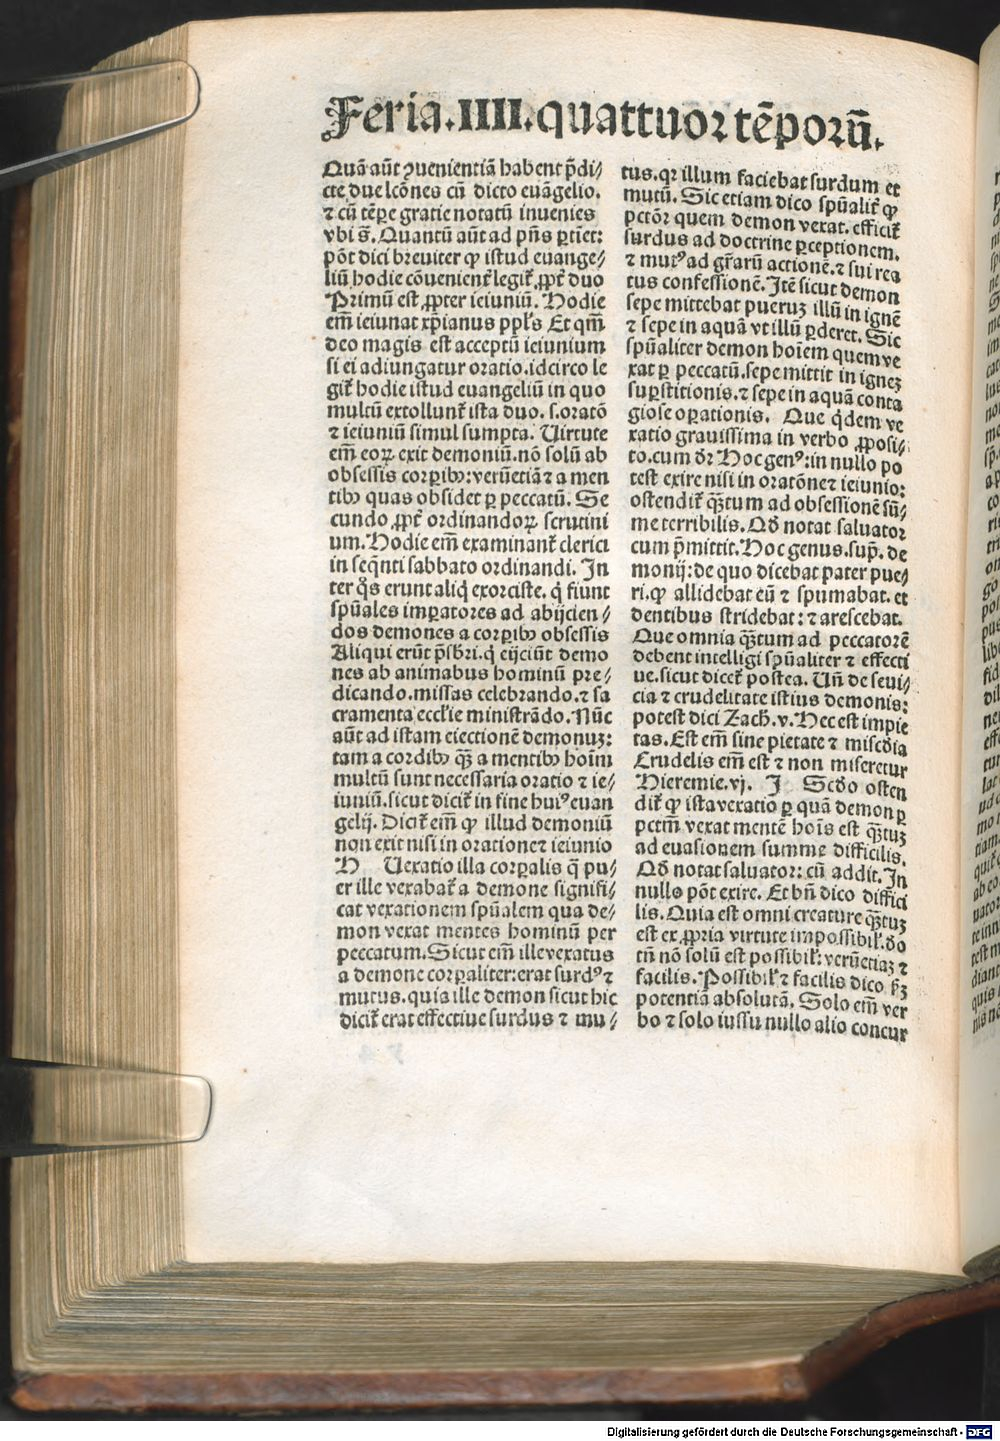 Feria.IIII.quattuor tēporū.
Quā aūt ꝯuenientiā habent p̄di⸗
cte due lcōnes cū dicto euāgelio.
⁊ cū tēꝑe gratie notatū inuenies
vbi s̄. Quantū aūt ad pn̄s ꝑtiet:
pōt dici breuiter ꝙ istud euange⸗
liū hodie cōuenient̄ legit̄ ꝓpt̄ duo
Primū est ꝓpter ieiuniū. Hodie
em̄ ieiunat xp̄ianus ppl's Et qm̄
deo magis est acceptū ieiunium
si ei adiungatur oratio.idcirco le
git̄ hodie istud euangeliū in quo
multū extollunt̄ ista duo. s.oratō
⁊ ieiuniū simul sumpta. Uirtute
em̄ eoꝝ exit demoniū.nō solū ab
obsessis corꝑibꝫ:verūetiā ⁊ a men
tibꝫ quas obsidet ꝑ peccatū. Se
cundo ꝓpt̄ ordinandoꝝ scrutini
um. Hodie em̄ examinant̄ clerici
in seqn̄ti sabbato ordinandi. In
ter q̊s erunt aliq̇ exorciste. q̇ fiunt
spūales imꝑatores ad abijcien⸗
dos demones a corꝑibꝫ obsessis
Aliqui erūt p̄sbri.q̇ eijciūt demo
nes ab animabus hominū pre⸗
dicando.missas celebrando.⁊ sa
cramenta eccl'ie ministrādo. Nūc
aūt ad istam eiectionē demonuꝫ:
tam a cordibꝫ qꝫ̄ a mentibꝫ hoīm
multū sunt necessaria oratio ⁊ ie⸗
iuniū.sicut dicit̄ in fine huiꝰ euan
gelij. Dicit̄ em̄ ꝙ illud demoniū
non exit nisi in oratione⁊ ieiunio
H Uexatio illa corꝑalis q̄ pu⸗
er ille vexabat̄ a demone signifi⸗
cat vexationem spūalem qua de⸗
mon vexat mentes hominū per
peccatum. Sicut em̄ ille vexatus
a demone corꝑaliter:erat surdꝰ ⁊
mutus.quia ille demon sicut hic
dicit̄ erat effectiue surdus ⁊ mu⸗
tus.qꝛ illum faciebat surdum et
mutū. Sic etiam dico spūalit̄ ꝙ
pctōr quem demon vexat.efficit̄
surdus ad doctrine ꝑceptionem.
⁊ mutꝰ ad gr̄arū actionē.⁊ sui rea
tus confessionē. Itē sicut demon
sepe mittebat pueruꝫ illū in ignē
⁊ sepe in aquā vt illū ꝑderet. Sic
spūaliter demon hoīem quem ve
xat ꝑ peccatū.sepe mittit in igneꝫ
suꝑstitionis.⁊ sepe in aquā conta
giose oꝑationis. Que q̇dem ve
xatio grauissima in verbo ꝓposi⸗
to.cum dr̄ Hoc genꝰ:in nullo po
test exire nisi in oratōne⁊ ieiunio:
ostendit̄ qꝫ̄tum ad obsessionē sū⸗
me terribilis. Qd̄ notat saluator
cum p̄mittit. Hoc genus.sup̄. de
monij:de quo dicebat pater pue⸗
ri.ꝙ allidebat eū ⁊ spumabat.et
dentibus stridebat:⁊ arescebat.
Que omnia qꝫ̄tum ad peccatorē
debent intelligi spūaliter ⁊ effecti
ue.sicut dicet̄ postea. Un̄ de seui⸗
cia ⁊ crudelitate istius demonis:
potest dici Zach̄.v. Hec est impie
tas. Est em̄ sine pietate ⁊ misc̄dia
Crudelis em̄ est ⁊ non miseretur
Hieremie.vj. I Scd̄o osten
dit̄ ꝙ ista vexatio ꝑ quā demon ꝑ
pctm̄ vexat mentē hoīs est qꝫ̄tuꝫ
ad euasionem summe difficilis.
Qd̄ notat saluator: cū addit. In
nullo pōt exire. Et bn̄ dico diffici
lis. Quia est omni creature qꝫ̄tuꝫ
est ex ꝓpria virtute impossibil'.d̄o
tn̄ nō solū est possibil': verūetiaꝫ ⁊
facilis. Possibil' ⁊ facilis dico ẜꝫ
potentiā absolutā. Solo em̄ ver
bo ⁊ solo iussu nullo alio concur
Digitalisierung gefördert durch die Deutsche Forschungsgemeinschaft - DFG